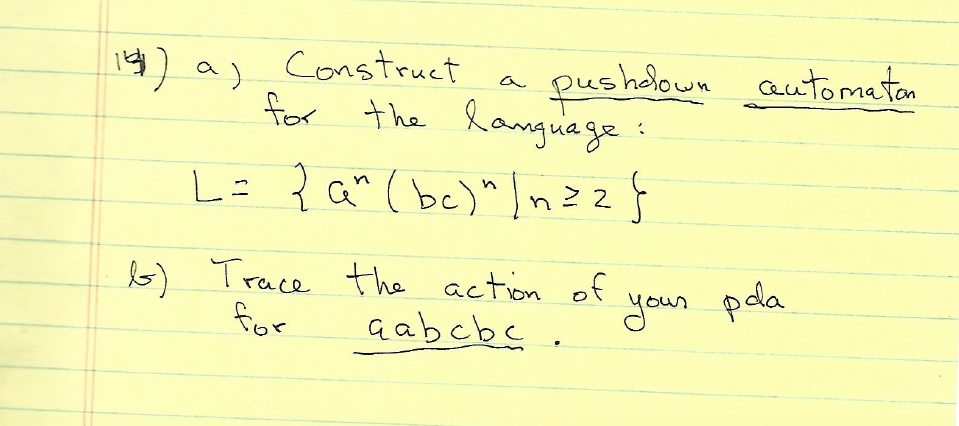 14) a) Construct a pushdown automaton
for the language :
L = { aⁿ (bc)ⁿ | n ≥ 2 }
b) Trace the action of your pda
for aabcbc .